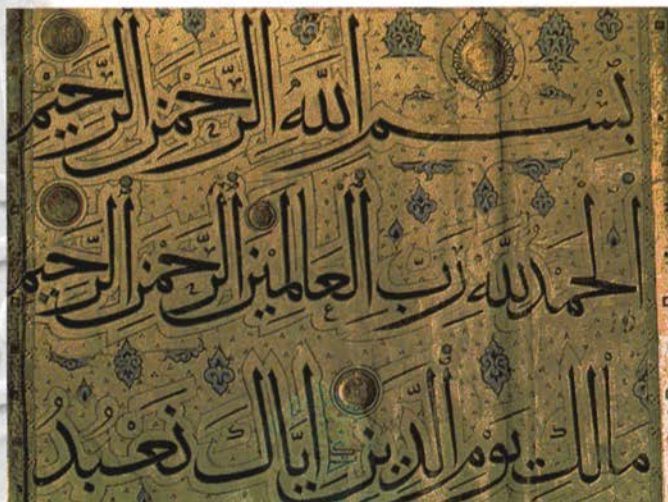 بِسْمِ اللَّهِ الرَّحْمَنِ الرَّحِيمِ
أَلْحَمْدُ لِلَّهِ رَبِّ أَلْعَالَمِينَ أَلرَّحْمَنِ أَلرَّحِيمِ
مَالِكِ يَوْمِ أَلدِّينِ إِيَّاكَ نَعْبُدُ